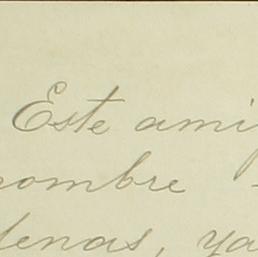 Este ami
nombre
denas, ya